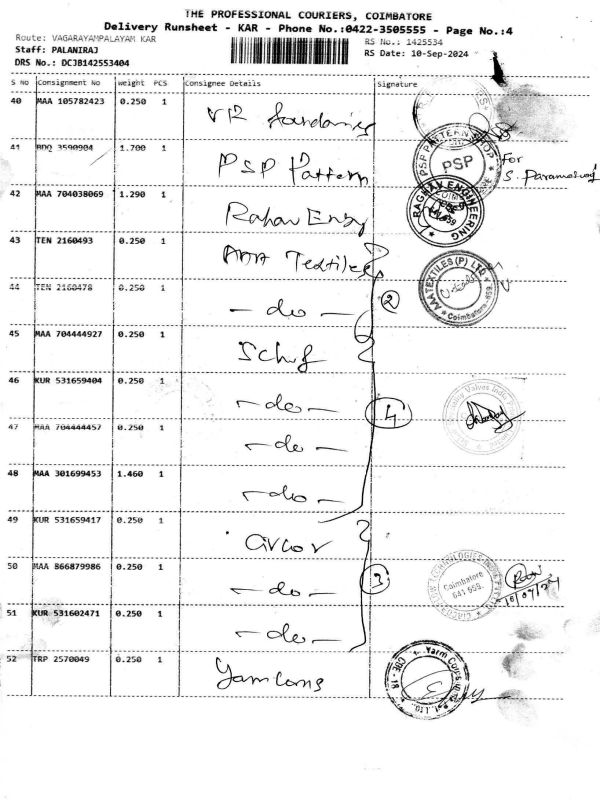 THE PROFESSIONAL COURIERS, COIMBATORE
Delivery Runsheet - KAR - Phone No.:0422-3505555 - Page No.:4
Route: VAGARAYAMPALAYAM KAR
RS No.: 1425534
Staff: PALANIRAJ
RS Date: 10-Sep-2024
DRS No.: DCJB142553404
S No Consignment No weight PCS Consignee Details Signature
40 MAA 105782423 0.250 1
41 BDQ 3590904 1.700 1 PSP Pattern
PSP PATTERN SHOP
PSP
for
42 MAA 704038069 1.290 1
RAGHAV ENGINEERING
43 TEN 2160493 0.250 1 AAA Textiles
44 TEN 2160478 0.250 1 - do - 2
AAA TEXTILES (P) LTD
Coimbatore-659.
45 MAA 704444927 0.250 1
46 KUR 531659404 0.250 1 - do - 4
47 MAA 704444457 0.250 1 - do -
Valves India
48 MAA 301699453 1.460 1 - do -
49 KUR 531659417 0.250 1
50 MAA 866879986 0.250 1 - do - 3
Coimbatore
641 659.
51 KUR 531602471 0.250 1 - do -
52 TRP 2570049 0.250 1
CBE - 18